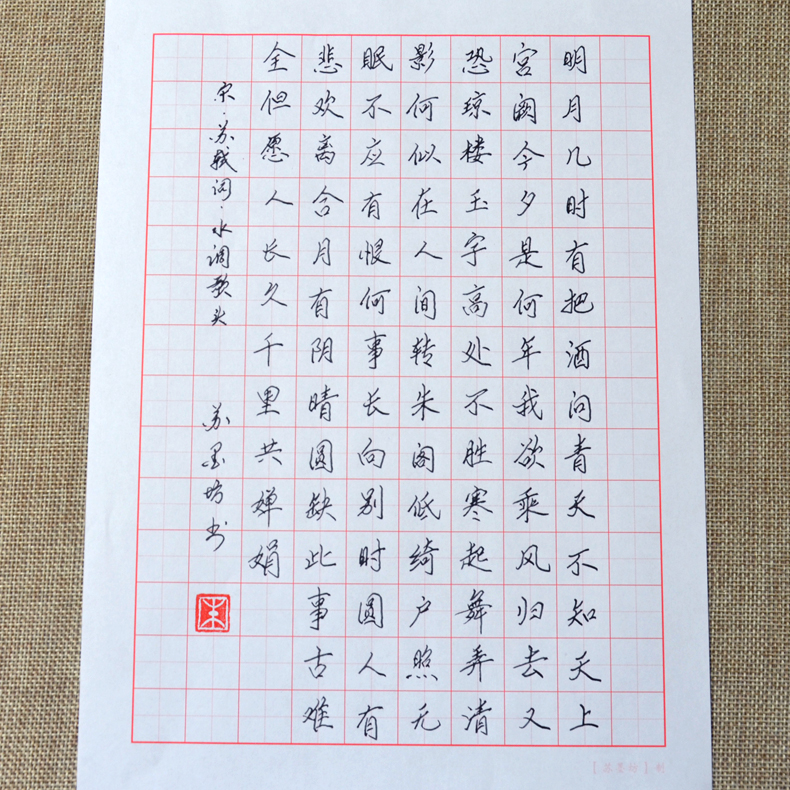 明月几时有把酒问青天不知天上
宫阙今夕是何年我欲乘风归去又
恐琼楼玉宇高处不胜寒起舞弄清
影何似在人间转朱阁低绮户照无
眠不应有恨何事长向别时圆人有
悲欢离合月有阴晴圆缺此事古难
全但愿人长久千里共婵娟
宋·苏轼词·水调歌头 苏墨坊书
【苏墨坊】制